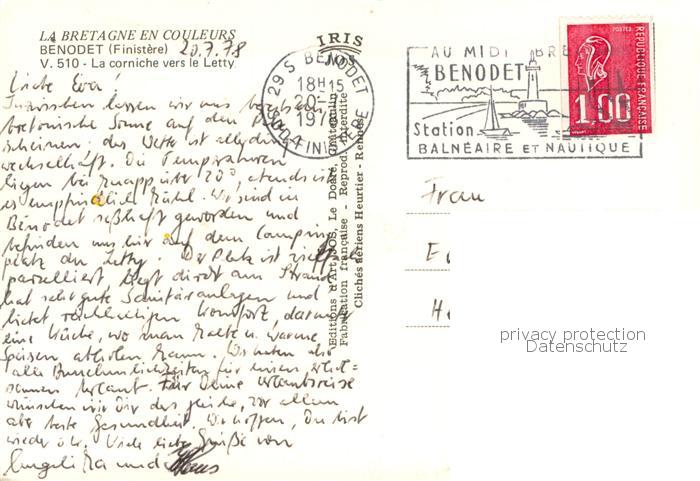 LA BRETAGNE EN COULEURS
BENODET (Finistère) 20.7.78
V. 510 - La corniche vers le Letty
Liebe Eva!
Inzwischen lassen wir uns
bretonische Sonne auf den
scheinen. das Wetter ist allerdings
wechselhaft. Die Temperaturen
liegen bei knapp über 20°, abends ist
es empfindlich kühl. Wir sind in
Bénodet seßhaft geworden und
befinden uns hier auf dem Camping
platz du Letty. Der Platz ist
parzelliert, liegt direkt am Strand
hat sehr gute Sanitäranlagen und
bietet reichlichen Komfort, darunter
eine Küche, wo man kalte u. warme
Speisen abholen kann. Wir haben also
alle Annehmlichkeiten für einen erhol=
samen Urlaub. Für Deine Urlaubsreise
wünschen wir Dir das gleiche, vor allem
aber beste Gesundheit. Wir hoffen, Du bist
wieder o.k. Viele liebe Grüße von
Angelika und Klaus
IRIS
JOS
Editions d'Art JOS, Le Doaré, Châteaulin
Fabrication française - Reprod. interdite
Clichés aériens Heurtier - Rennes
29 S BENODET
18H15
1978
FINISTERE
AU MIDI BRE
BENODET
Station
BALNÉAIRE ET NAUTIQUE
POSTES
1,00
REPUBLIQUE FRANÇAISE
Frau
E
H
privacy protection
Datenschutz